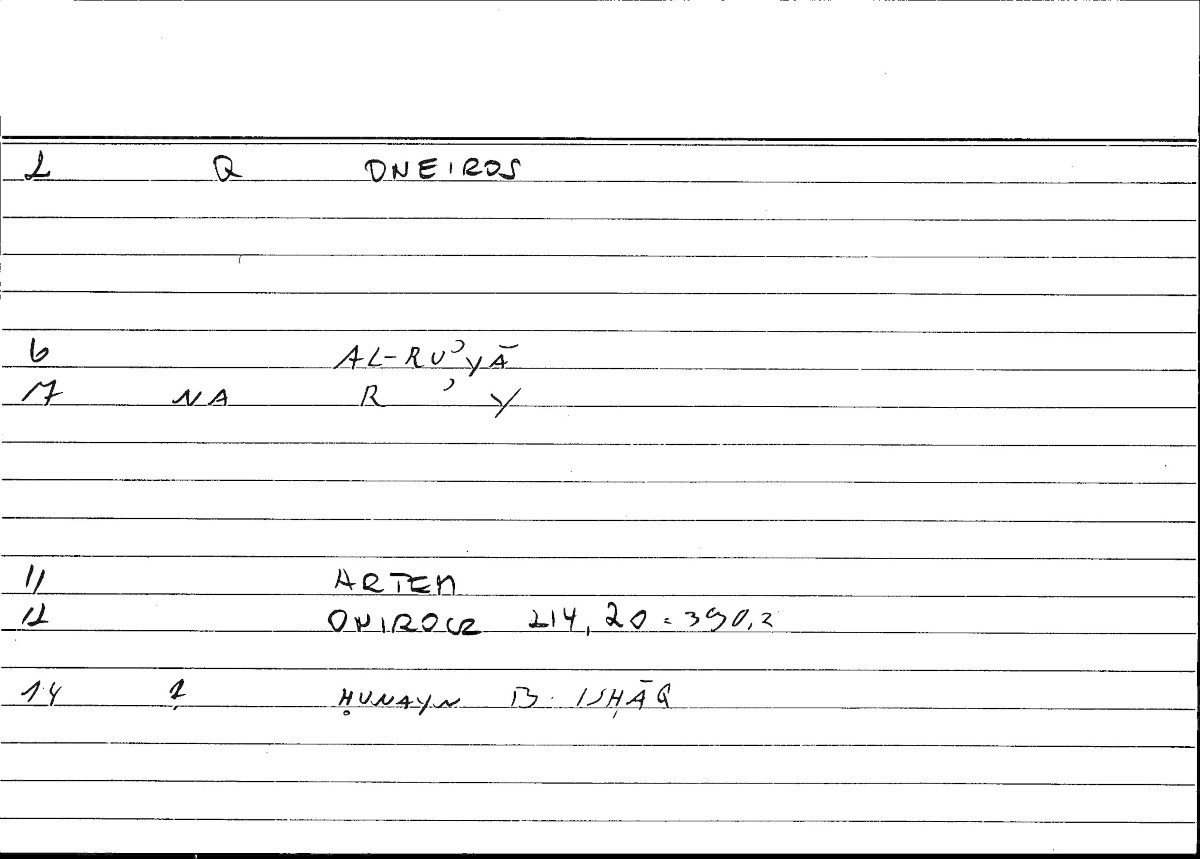 2 Q ONEIROS
6 AL-RUʾYĀ
7 NA R ʾ Y
11 ARTEM
12 ONIROCR 214,20 = 390,2
14 1 ḤUNAYN B. ISḤĀQ